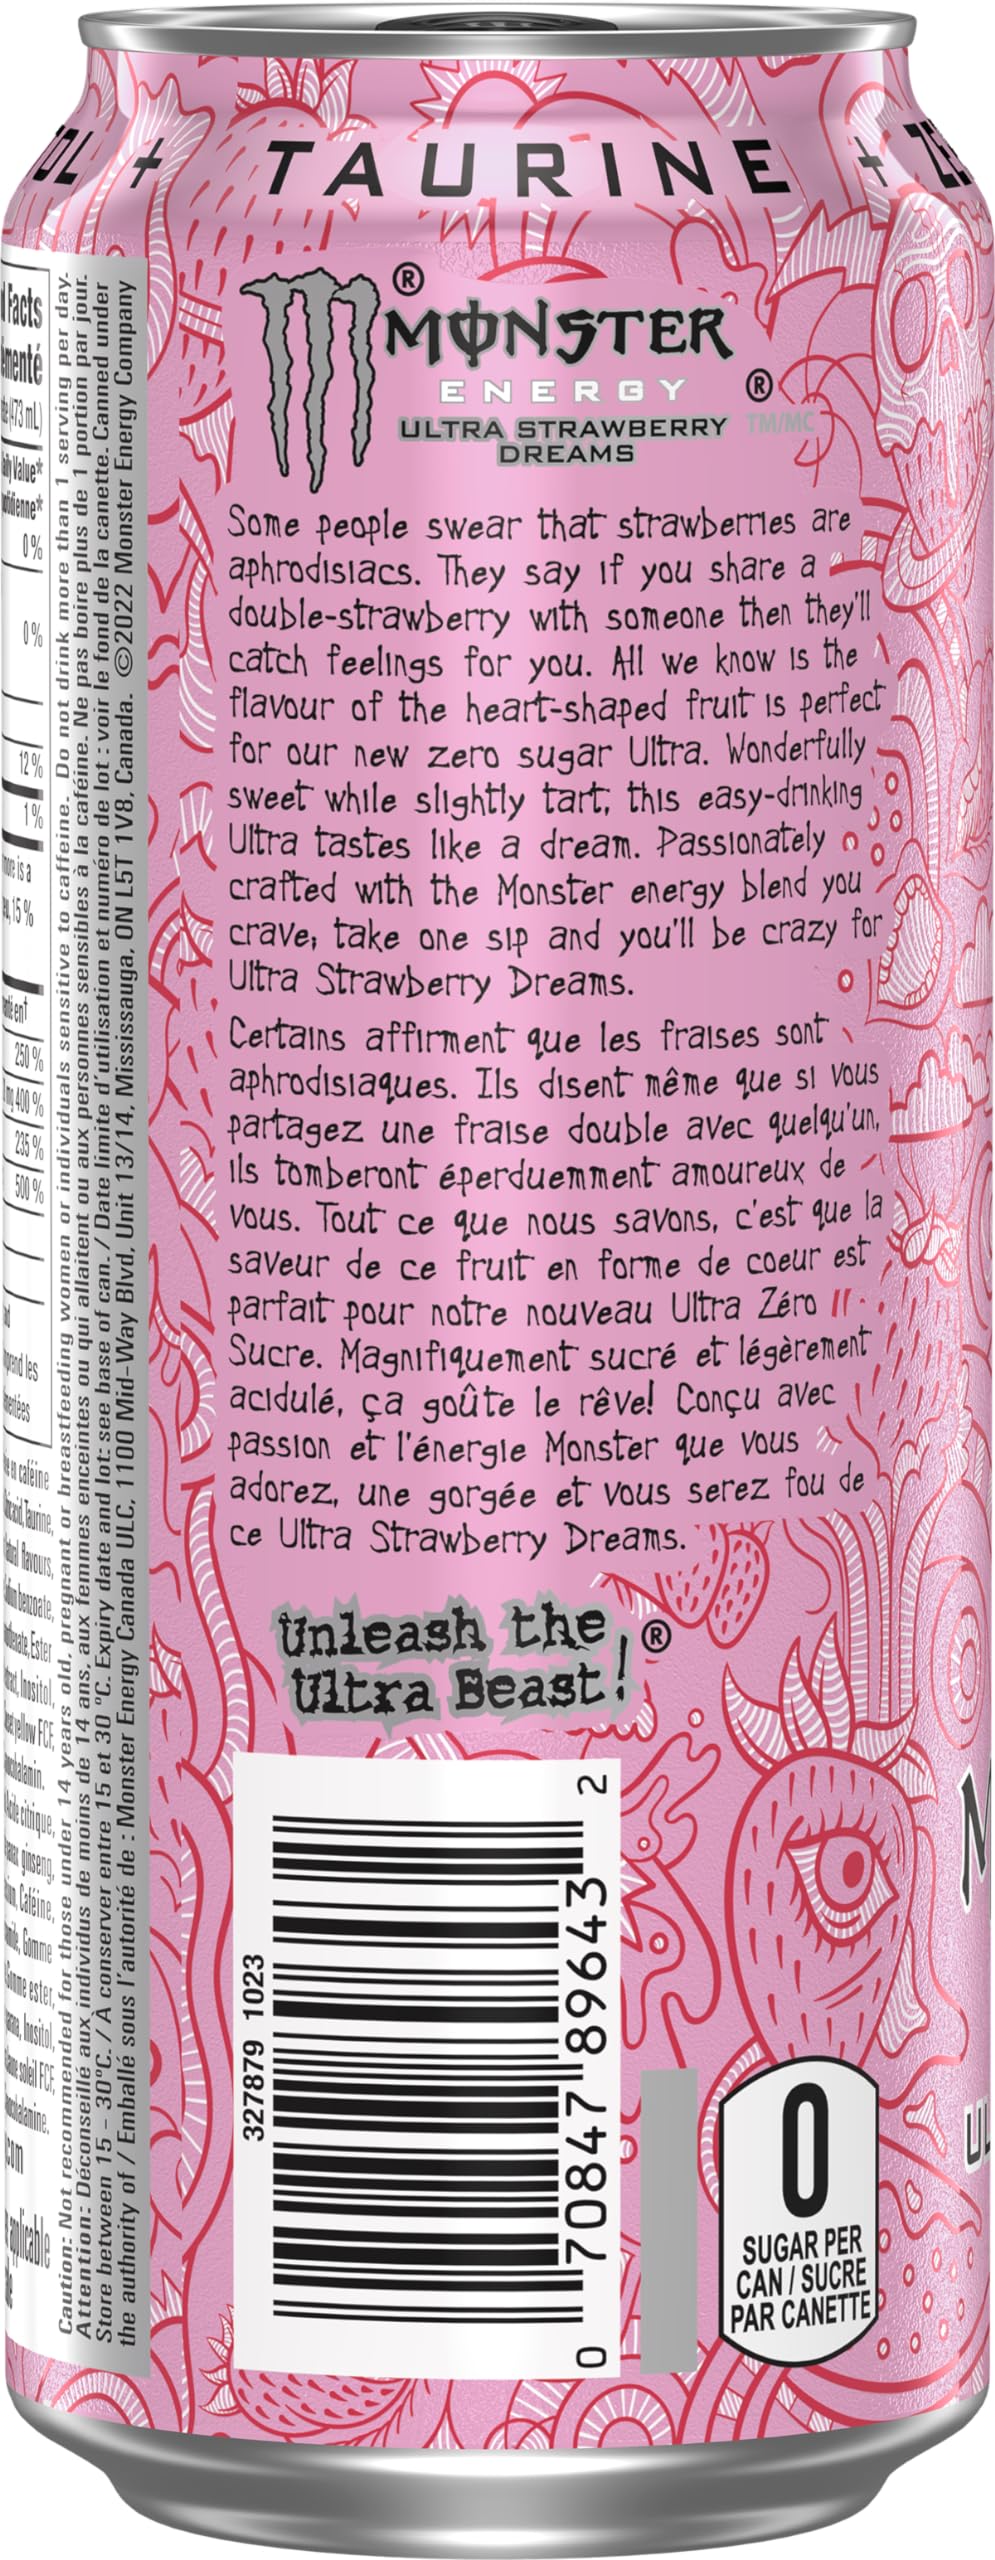 TAURINE +
®
MONSTER
ENERGY ®
ULTRA STRAWBERRY TM/MC
DREAMS
Some people swear that strawberries are
aphrodisiacs. They say if you share a
double-strawberry with someone then they'll
catch feelings for you. All we know is the
flavour of the heart-shaped fruit is perfect
for our new zero sugar Ultra. Wonderfully
sweet while slightly tart, this easy-drinking
Ultra tastes like a dream. Passionately
crafted with the Monster energy blend you
crave, take one sip and you'll be crazy for
Ultra Strawberry Dreams.
Certains affirment que les fraises sont
aphrodisiaques. Ils disent même que si vous
partagez une fraise double avec quelqu'un,
ils tomberont éperduemment amoureux de
vous. Tout ce que nous savons, c'est que la
saveur de ce fruit en forme de coeur est
parfait pour notre nouveau Ultra Zéro
Sucre. Magnifiquement sucré et légèrement
acidulé, ça goûte le rêve! Conçu avec
passion et l'énergie Monster que vous
adorez, une gorgée et vous serez fou de
ce Ultra Strawberry Dreams.
Unleash the
Ultra Beast! ®
327879 1023
0 70847 89643 2
0
SUGAR PER
CAN / SUCRE
PAR CANETTE
Caution: Not recommended for those under 14 years old, pregnant or breastfeeding women or individuals sensitive to caffeine. Do not drink more than 1 serving per day.
Attention: Déconseillé aux individus de moins de 14 ans, aux femmes enceintes ou qui allaitent ou aux personnes sensibles à la caféine. Ne pas boire plus de 1 portion par jour.
Store between 15 - 30°C. / À conserver entre 15 et 30 °C. Expiry date and lot: see base of can. / Date limite d'utilisation et numéro de lot : voir le fond de la canette. Canned under
the authority of / Emballé sous l'autorité de : Monster Energy Canada ULC, 1100 Mid-Way Blvd, Unit 13/14, Mississauga, ON L5T 1V8, Canada. ©2022 Monster Energy Company
Facts
(473 mL)
Daily Value*
0 %
0 %
12 %
1 %
15 %
250 %
400 %
235 %
500 %
caféine
Taurine,
flavours,
benzoate,
Ester
Inositol,
yellow FCF,
citrique,
ginseng,
Caféine,
Gomme
Gomme ester,
Inositol,
soleil FCF,
applicable